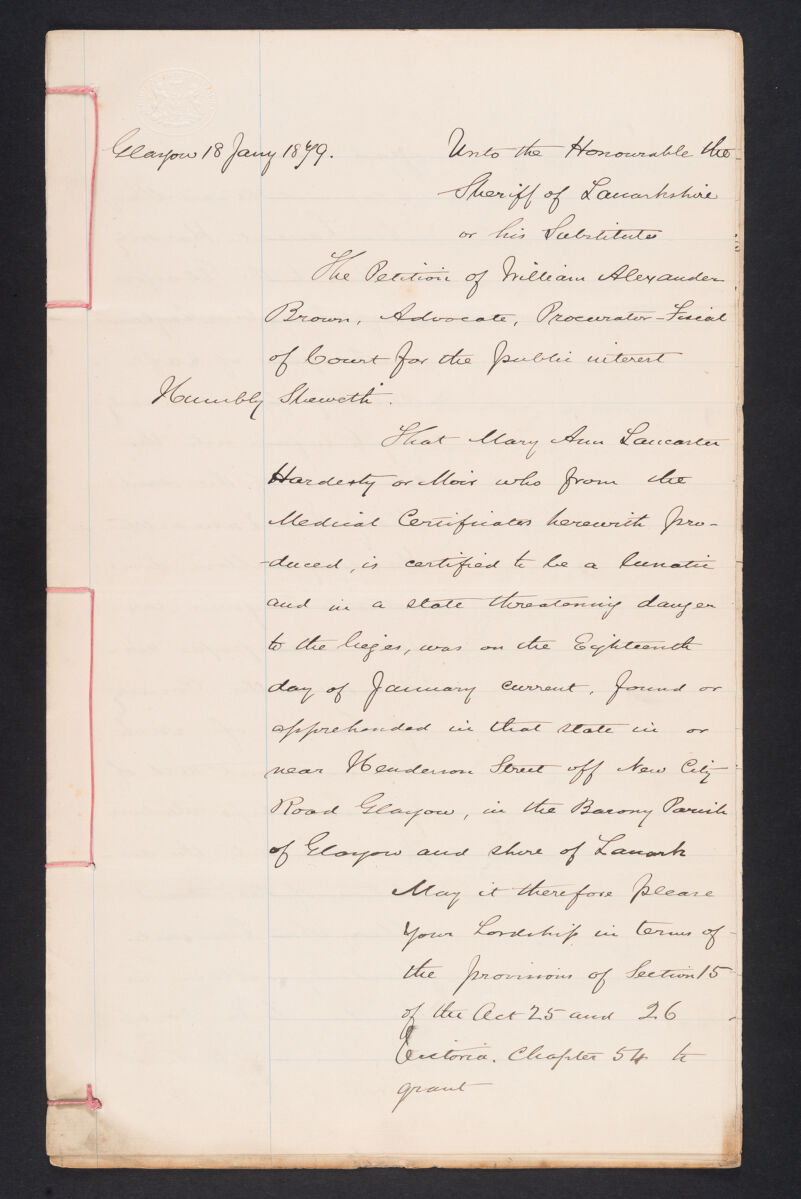 Glasgow 18 Jany 1879.
Unto the Honourable the
Sheriff of Lanarkshire
or his Substitute
The Petition of William Alexander
Brown, Advocate, Procurator-Fiscal
of Court for the public interest
Humbly Sheweth.
That Mary Ann Lancaster
Hardesty or Moir who from the
Medical Certificates herewith pro-
-duced, is certified to be a lunatic
and in a state threatening danger
to the lieges, was on the Eighteenth
day of January current, found or
apprehended in that state in or
near Henderson Street off New City
Road Glasgow, in the Barony Parish
of Glasgow and shire of Lanark
May it therefore please
your Lordship in terms of
the provisions of Section 15
of the Act 25 and 26
Victoria. Chapter 54 to
grant